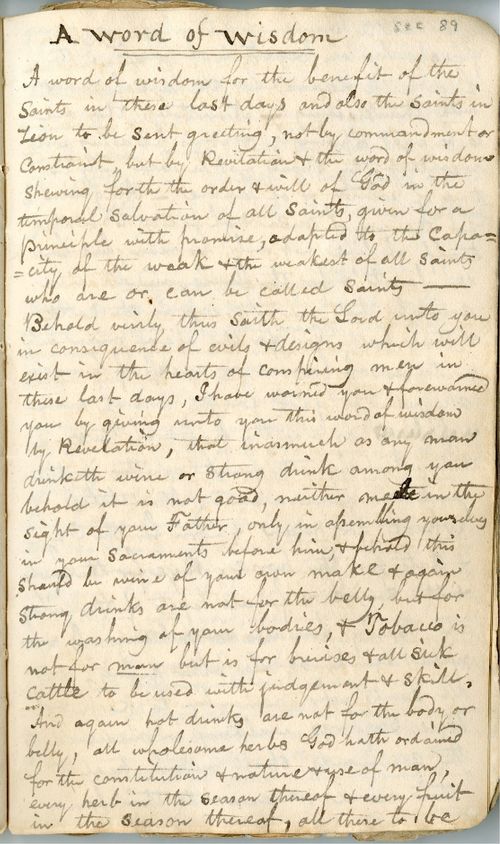 A word of wisdom
sec 89
A word of wisdom for the benefit of the
Saints in these last days and also the Saints in
Zion to be sent greeting, not by commandment or
Constraint but by Revelation & the word of wisdom
Shewing forth the order & will of God in the
temporal Salvation of all Saints, given for a
principle with promise, adapted to the Capa=
=city of the weak & the weakest of all Saints
who are or can be called Saints —
Behold virily thus Saith the Lord unto you
in consequence of evils & designs which will
exist in the hearts of conspiring men in
these last days, I have warned you & forewarned
you by giving unto you this word of wisdom
by Revelation, that inasmuch as any man
drinketh wine or Strong drink among you
behold it is not good, neither meete in the
Sight of your Father, only in assembling yourselves
in your Sacraments before him, & behold this
Should be wine of your own make & again
Strong drinks are not for the belly but for
the washing of your bodies, & Tobacco is
not for man but is for bruises & all Sick
Cattle to be used with judgement & Skill,
And again hot drinks are not for the body or
belly, all wholesome herbs God hath ordained
for the constitution & nature & use of man,
every herb in the Season thereof & every fruit
in the Season thereof, all these to be